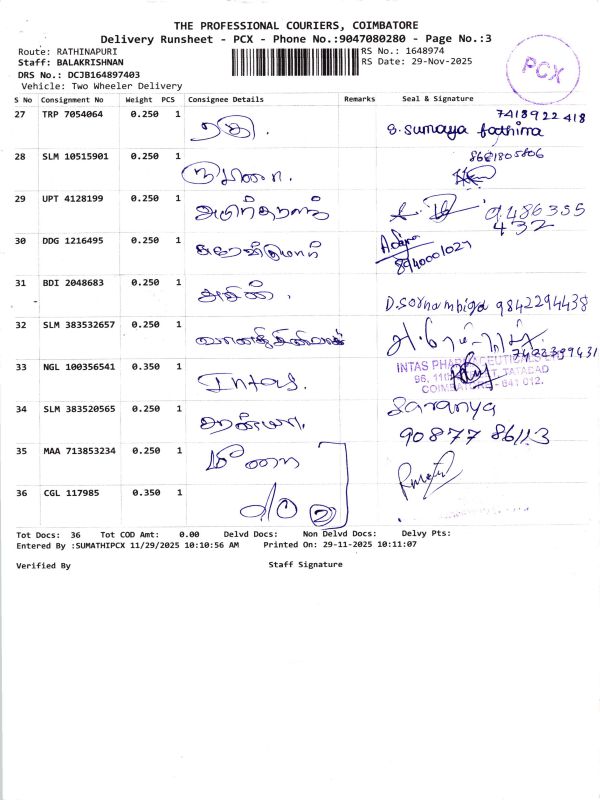 THE PROFESSIONAL COURIERS, COIMBATORE
Delivery Runsheet - PCX - Phone No.:9047080280 - Page No.:3
Route: RATHINAPURI
Staff: BALAKRISHNAN
DRS No.: DCJB164897403
Vehicle: Two Wheeler Delivery
RS No.: 1648974
RS Date: 29-Nov-2025
PCX
S No Consignment No Weight PCS Consignee Details Remarks Seal & Signature
27 TRP 7054064 0.250 1 7418922418
S. Sumaya fathima
28 SLM 10515901 0.250 1
29 UPT 4128199 0.250 1 9486355
432
30 DDG 1216495 0.250 1
8940001027
31 BDI 2048683 0.250 1
D.Sornambiga 9842294438
32 SLM 383532657 0.250 1
33 NGL 100356541 0.350 1 Intas.
INTAS PHARMACEUTICALS
TATABAD
COIMBATORE - 641 012.
34 SLM 383520565 0.250 1 சரண்யா. Saranya
90877 86113
35 MAA 713853234 0.250 1 மீனா
36 CGL 117985 0.350 1 d/o 2
Tot Docs: 36 Tot COD Amt: 0.00 Delvd Docs: Non Delvd Docs: Delvy Pts:
Entered By :SUMATHIPCX 11/29/2025 10:10:56 AM Printed On: 29-11-2025 10:11:07
Verified By Staff Signature